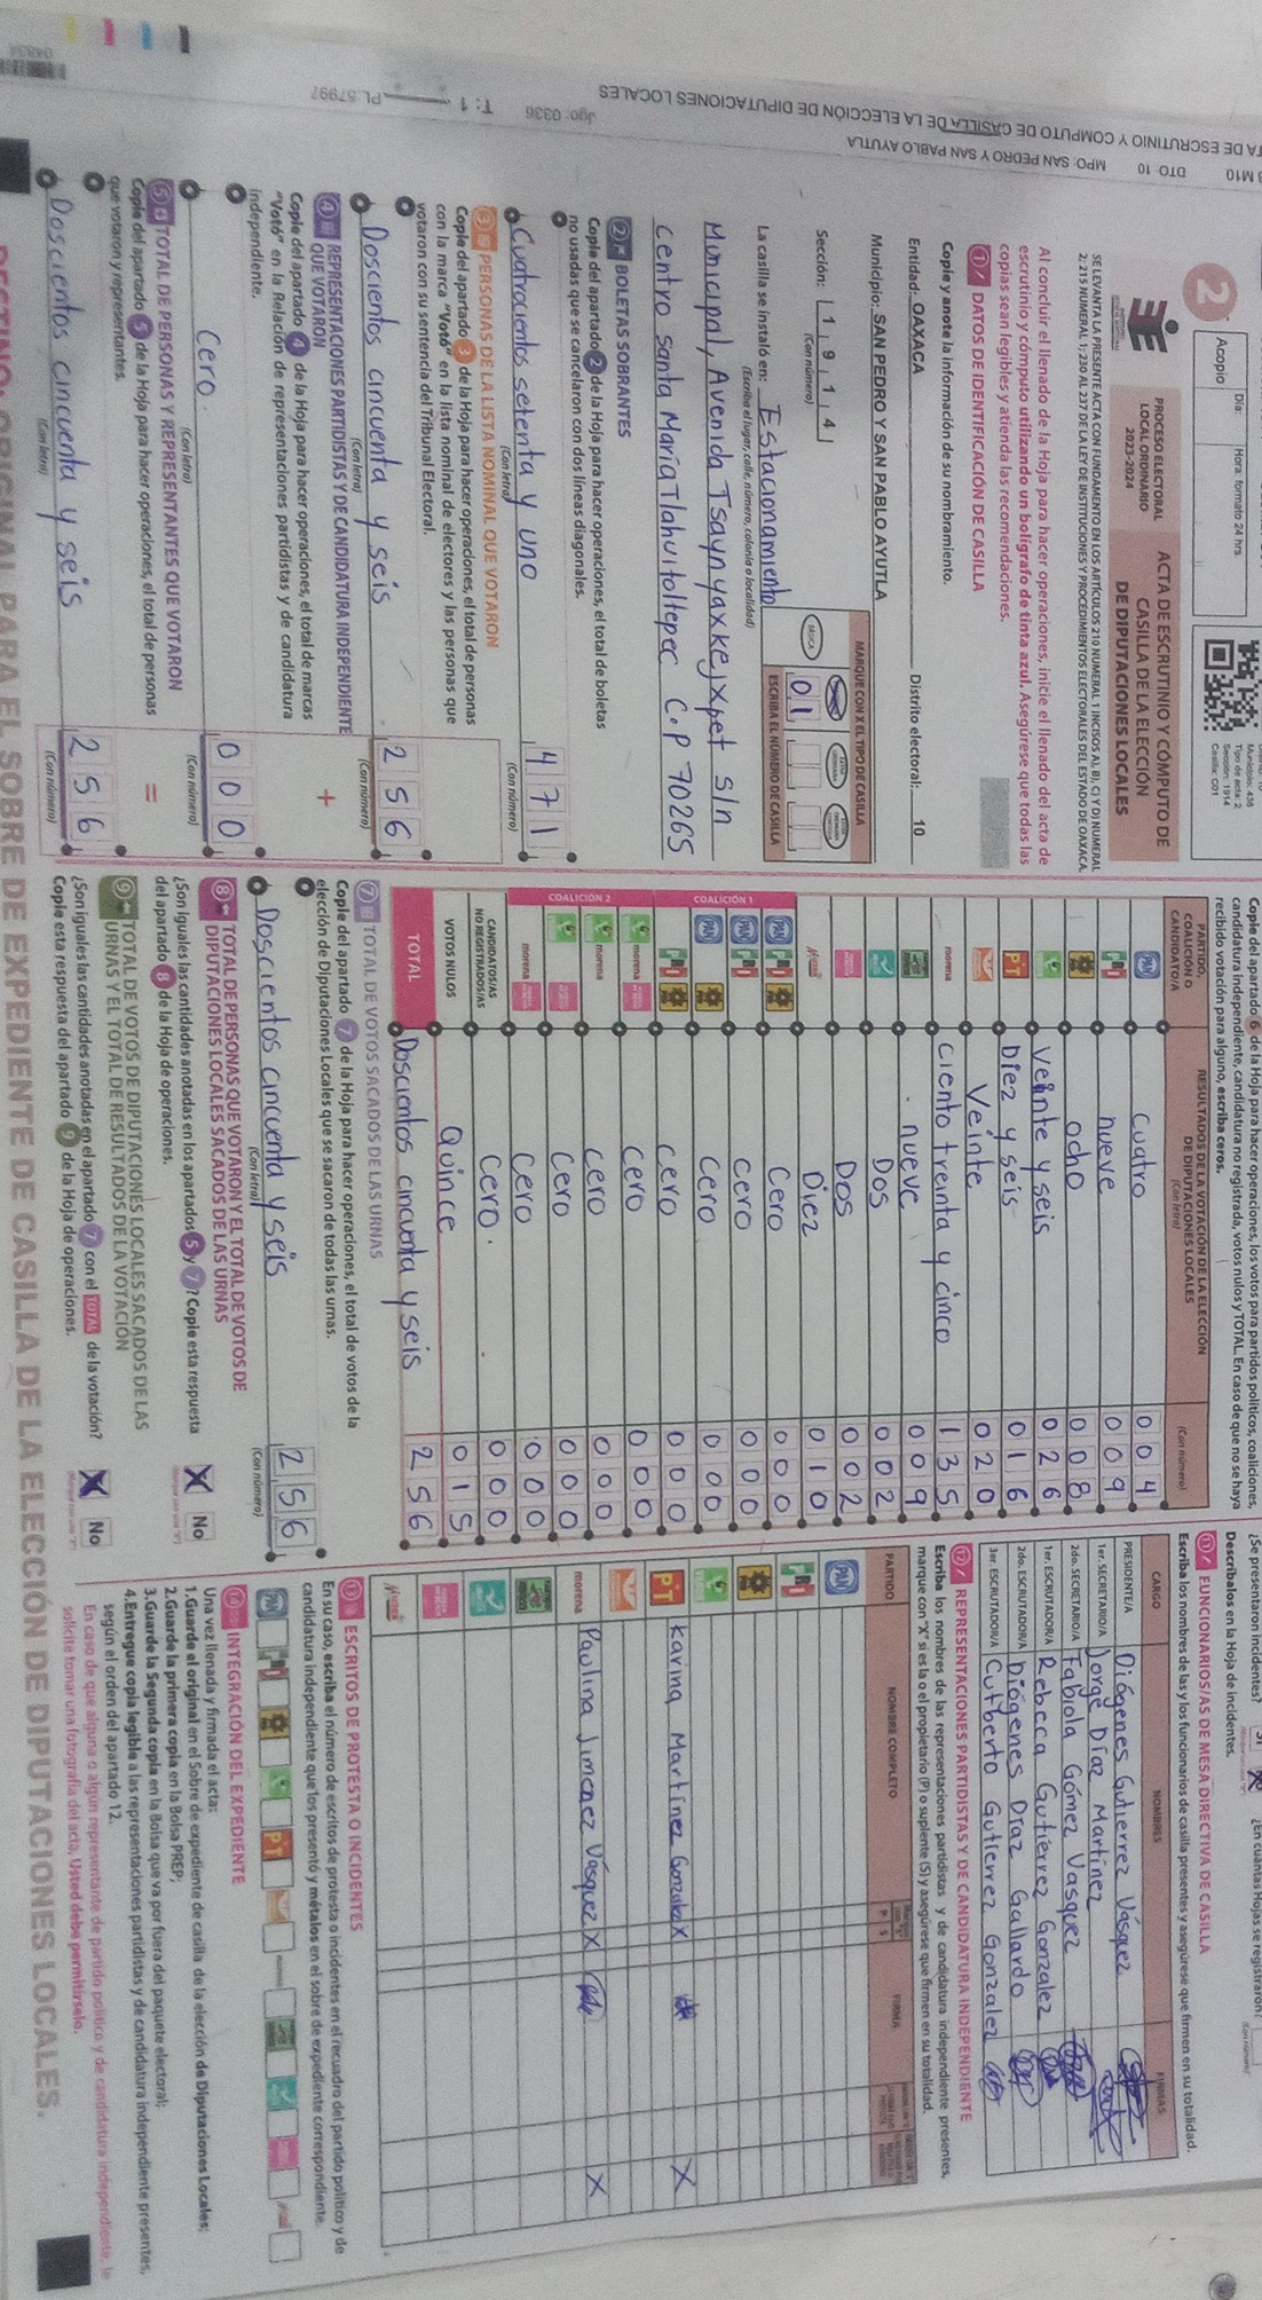 TA DE ESCRUTINIO Y CÓMPUTO DE CASILLA DE LA ELECCIÓN DE DIPUTACIONES LOCALES
DTO: 10 MPO: SAN PEDRO Y SAN PABLO AYUTLA
Jgo: 0336
T: 1
PL.57997
2
Acopio
Día:
Hora: formato 24 hrs.
Municipio: 436
Tipo de acta: 2
Sección: 1914
Casilla: C01
PROCESO ELECTORAL
LOCAL ORDINARIO
2023-2024
ACTA DE ESCRUTINIO Y CÓMPUTO DE
CASILLA DE LA ELECCIÓN
DE DIPUTACIONES LOCALES
SE LEVANTA LA PRESENTE ACTA CON FUNDAMENTO EN LOS ARTÍCULOS 210 NUMERAL 1 INCISOS A), B), C) Y D) NUMERAL
2; 215 NUMERAL 1; 230 AL 237 DE LA LEY DE INSTITUCIONES Y PROCEDIMIENTOS ELECTORALES DEL ESTADO DE OAXACA.
Al concluir el llenado de la Hoja para hacer operaciones, inicie el llenado del acta de
escrutinio y cómputo utilizando un bolígrafo de tinta azul. Asegúrese que todas las
copias sean legibles y atienda las recomendaciones.
1 DATOS DE IDENTIFICACIÓN DE CASILLA
Copie y anote la información de su nombramiento.
Entidad: OAXACA Distrito electoral: 10
Municipio: SAN PEDRO Y SAN PABLO AYUTLA
Sección: 1 9 1 4
(Con número)
MARQUE CON X EL TIPO DE CASILLA
BÁSICA
ESCRIBA EL NÚMERO DE CASILLA
01
La casilla se instaló en: Estacionamiento
(Escriba el lugar, calle, número, colonia o localidad)
Municipal, Avenida Tsaynyaxkejxpet s/n
centro santa María Tlahuitoltepec C.P 70265
2 BOLETAS SOBRANTES
Copie del apartado 2 de la Hoja para hacer operaciones, el total de boletas
no usadas que se cancelaron con dos líneas diagonales.
Cuatrocientos setenta y uno 471
(Con letra) (Con número)
3 PERSONAS DE LA LISTA NOMINAL QUE VOTARON
Copie del apartado 3 de la Hoja para hacer operaciones, el total de personas
con la marca "Votó" en la lista nominal de electores y las personas que
votaron con su sentencia del Tribunal Electoral.
Doscientos cincuenta y seis 256
(Con letra) (Con número)
4 REPRESENTACIONES PARTIDISTAS Y DE CANDIDATURA INDEPENDIENTE
QUE VOTARON
+
Copie del apartado 4 de la Hoja para hacer operaciones, el total de marcas
"Votó" en la Relación de representaciones partidistas y de candidatura
independiente.
Cero 000
(Con letra) (Con número)
5 TOTAL DE PERSONAS Y REPRESENTANTES QUE VOTARON
=
Copie del apartado 5 de la Hoja para hacer operaciones, el total de personas
que votaron y representantes.
Doscientos cincuenta y seis 256
(Con letra) (Con número)
Copie del apartado 6 de la Hoja para hacer operaciones, los votos para partidos políticos, coaliciones,
candidatura independiente, candidatura no registrada, votos nulos y TOTAL. En caso de que no se haya
recibido votación para alguno, escriba ceros.
PARTIDO,
COALICIÓN O
CANDIDATO/A
RESULTADOS DE LA VOTACIÓN DE LA ELECCIÓN
DE DIPUTACIONES LOCALES
(Con letra) (Con número)
PAN cuatro 004
PRI nueve 009
PRD ocho 008
Veinte y seis 026
PT Diez y seis 016
Veinte 020
morena ciento treinta y cinco 135
nueve 009
Dos 002
Dos 002
Diez 010
COALICIÓN 1
PAN PRI PRD Cero 000
PAN PRI cero 000
PAN PRD Cero 000
PRI PRD cero 000
COALICIÓN 2
morena cero 000
morena cero 000
cero 000
morena cero 000
CANDIDATOS/AS
NO REGISTRADOS/AS cero. 000
VOTOS NULOS Quince 015
TOTAL Doscientos cincuenta y seis 256
7 TOTAL DE VOTOS SACADOS DE LAS URNAS
Copie del apartado 7 de la Hoja para hacer operaciones, el total de votos de la
elección de Diputaciones Locales que se sacaron de todas las urnas.
Doscientos cincuenta y seis 256
(Con letra) (Con número)
8 TOTAL DE PERSONAS QUE VOTARON Y EL TOTAL DE VOTOS DE
DIPUTACIONES LOCALES SACADOS DE LAS URNAS
¿Son iguales las cantidades anotadas en los apartados 5 y 7? Copie esta respuesta
del apartado 8 de la Hoja de operaciones.
X No
9 TOTAL DE VOTOS DE DIPUTACIONES LOCALES SACADOS DE LAS
URNAS Y EL TOTAL DE RESULTADOS DE LA VOTACIÓN
¿Son iguales las cantidades anotadas en el apartado 7 con el TOTAL de la votación?
Copie esta respuesta del apartado 9 de la Hoja de operaciones.
X No
¿Se presentaron incidentes? X ¿En cuántas Hojas se registraron?
(Con número)
Descríbalos en la Hoja de incidentes.
11 FUNCIONARIOS/AS DE MESA DIRECTIVA DE CASILLA
Escriba los nombres de las y los funcionarios de casilla presentes y asegúrese que firmen en su totalidad.
CARGO NOMBRES FIRMAS
PRESIDENTE/A Diógenes Gutierrez Vásquez
1er. SECRETARIO/A Jorge Díaz Martínez
2do. SECRETARIO/A Fabiola Gómez Vasquez
1er. ESCRUTADOR/A Rebeca Gutiérrez Gonzalez
2do. ESCRUTADOR/A Diógenes Díaz Gallardo
3er. ESCRUTADOR/A Cutberto Gutierrez Gonzalez
12 REPRESENTACIONES PARTIDISTAS Y DE CANDIDATURA INDEPENDIENTE
Escriba los nombres de las representaciones partidistas y de candidatura independiente presentes,
marque con "X" si es la o el propietario (P) o suplente (S) y asegúrese que firmen en su totalidad.
PARTIDO NOMBRE COMPLETO P S FIRMA
PAN
PRI
PRD
PT Karina Martínez Gonzalez X X
morena Paulina Jimenez Vásquez X X
13 ESCRITOS DE PROTESTA O INCIDENTES
En su caso, escriba el número de escritos de protesta o incidentes en el recuadro del partido político y de
candidatura independiente que los presentó y métalos en el sobre de expediente correspondiente.
14 INTEGRACIÓN DEL EXPEDIENTE
Una vez llenada y firmada el acta:
1.Guarde el original en el Sobre de expediente de casilla de la elección de Diputaciones Locales;
2.Guarde la primera copia en la Bolsa PREP;
3.Guarde la Segunda copia en la Bolsa que va por fuera del paquete electoral;
4.Entregue copia legible a las representaciones partidistas y de candidatura independiente presentes,
según el orden del apartado 12.
En caso de que alguna o algún representante de partido político y de candidatura independiente, le
solicite tomar una fotografía del acta, Usted debe permitírselo.
DESTINO: ORIGINAL PARA EL SOBRE DE EXPEDIENTE DE CASILLA DE LA ELECCIÓN DE DIPUTACIONES LOCALES.